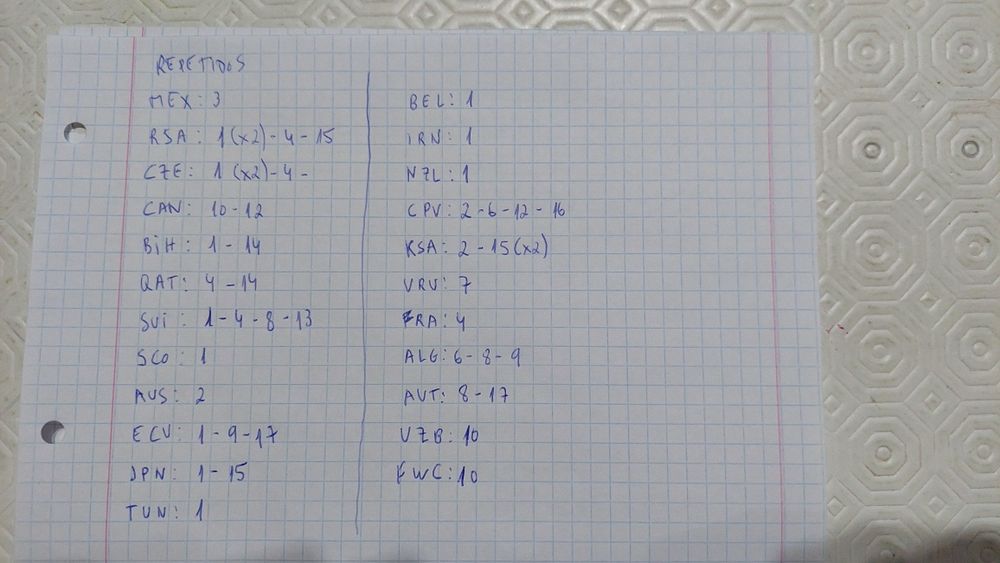 REPETIDOS
MEX: 3
RSA: 1(x2)-4-15
CZE: 1(x2)-4-
CAN: 10-12
BiH: 1-14
QAT: 4-14
SUi: 1-4-8-13
SCO: 1
AUS: 2
ECU: 1-9-17
JPN: 1-15
TUN: 1
BEL: 1
iRN: 1
NZL: 1
CPV: 2-6-12-16
KSA: 2-15(x2)
URU: 7
FRA: 4
ALG: 6-8-9
AUT: 8-17
UZB: 10
FWC: 10